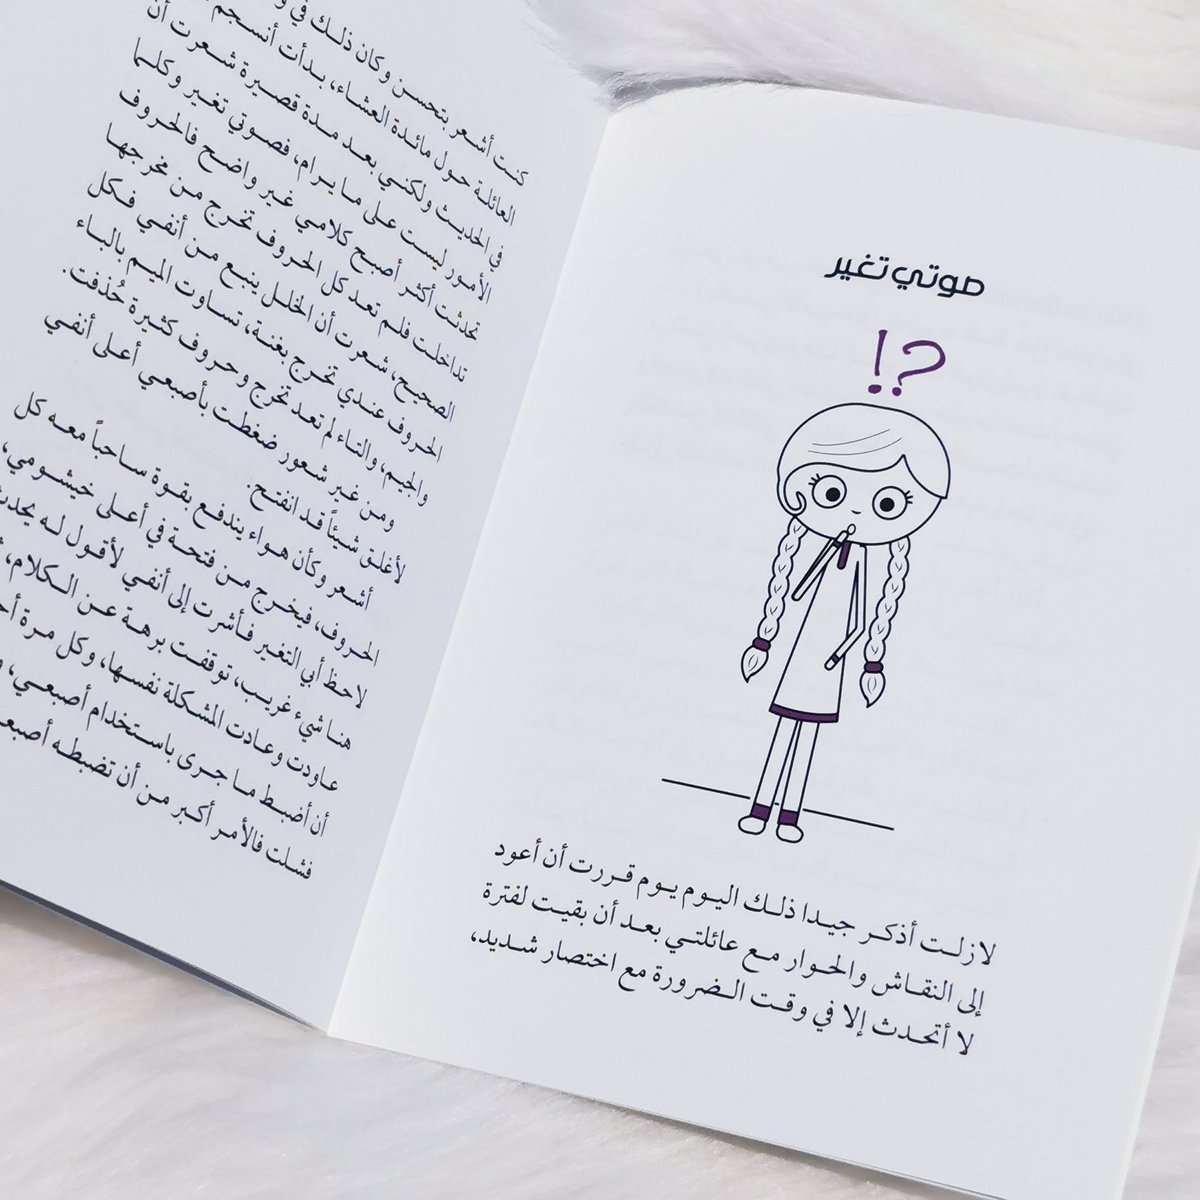 صوتي تغير
؟!
لازلت أذكر جيدا ذلك اليوم يوم قررت أن أعود
إلى النقاش والحوار مع عائلتي بعد أن بقيت لفترة
لا أتحدث إلا في وقت الضرورة مع اختصار شديد،
كنت أشعر بتحسن وكان ذلك في
العائلة حول مائدة العشاء، بدأت أنسجم
في الحديث ولكني بعد مدة قصيرة شعرت أن
الأمور ليست على ما يرام، فصوتي تغير وكلما
تحدثت أكثر أصبح كلامي غير واضح فالحروف
تداخلت فلم تعد كل الحروف تخرج من مخرجها
الصحيح، شعرت أن الخلل ينبع من أنفي فكل
الحروف عندي تخرج بغنة، تساوت الميم بالباء
والجيم، والتاء لم تعد تخرج وحروف كثيرة حُذفت.
ومن غير شعور ضغطت بأصبعي أعلى أنفي
لأغلق شيئاً قد انفتح.
أشعر وكأن هواء يندفع بقوة ساحباً معه كل
الحروف، فيخرج من فتحة في أعلى خيشومي،
لاحظ أبي التغير فأشرت إلى أنفي لأقول له يحدث
هنا شيء غريب، توقفت برهة عن الكلام،
عاودت وعادت المشكلة نفسها، وكل مرة
أن أضبط ما جرى باستخدام أصبعي،
فشلت فالأمر أكبر من أن تضبطه